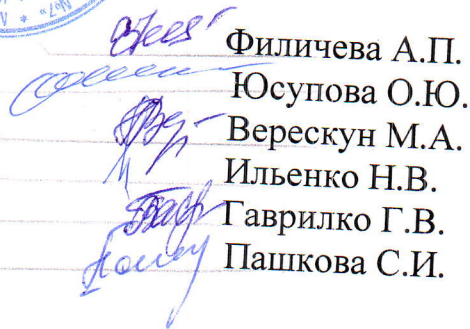 Филичева А.П.
Юсупова О.Ю.
Верескун М.А.
Ильенко Н.В.
Гаврилко Г.В.
Пашкова С.И.